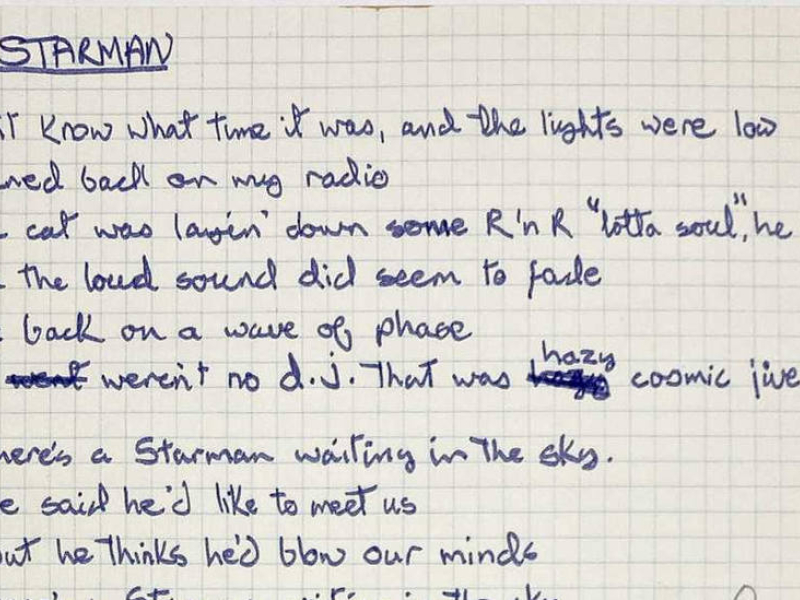 STARMAN
it know what time it was, and the lights were low
ned back on my radio
cat was layin' down some R'n R "lotta soul", he
the loud sound did seem to fade
back on a wave of phase
hazy
went weren't no d.j. That was cosmic jive
here's a Starman waiting in the sky.
e said he'd like to meet us
out he thinks he'd blow our minds